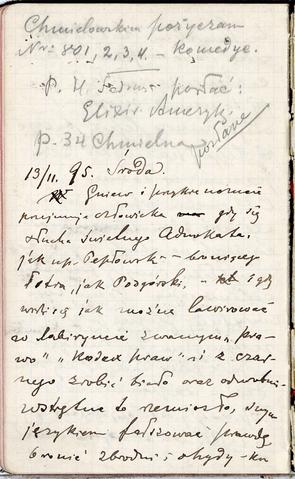 Chmielowskim pożyczam
Nr: 801, 2, 3, 4. - Komedye.
p. H. posłać:
Elixir Ameryk.
p. 34 Chmielna
posłane
13/11. 95. Środa.
Gniew i przykre
przejmują człowieka gdy się
słucha Adwokata,
jak np. Pepłowski -
łotra, jak Podgórski, - i gdy
jak można lawirować
w labiryncie zwanym "pra-
wo" "Kodex praw" i z czar-
nego zrobić biało oraz odwrotnie
wstrętne to rzemiosło,
językiem fałszować prawdę
bronić zbrodni i ohydy -